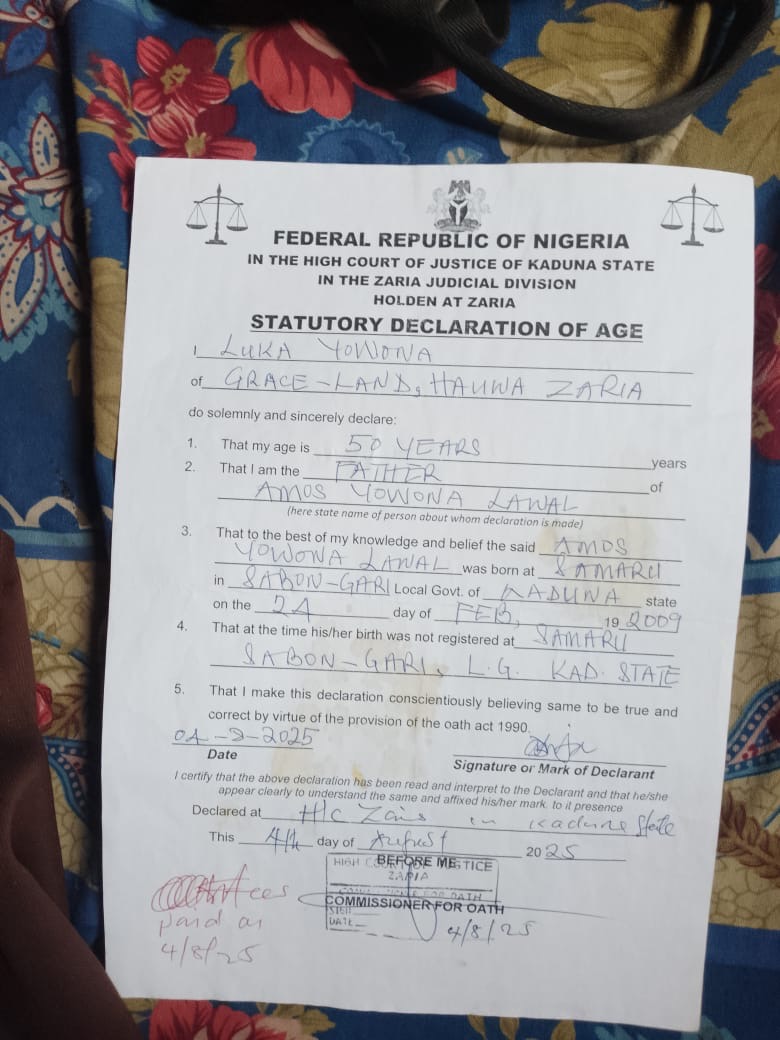 FEDERAL REPUBLIC OF NIGERIA
IN THE HIGH COURT OF JUSTICE OF KADUNA STATE
IN THE ZARIA JUDICIAL DIVISION
HOLDEN AT ZARIA
STATUTORY DECLARATION OF AGE
I LUKA YOWONA
of GRACE-LAND, HAUWA ZARIA
do solemnly and sincerely declare:
1. That my age is 50 YEARS years
2. That I am the FATHER of
AMOS YOWONA LAWAL
(here state name of person about whom declaration is made)
3. That to the best of my knowledge and belief the said AMOS
YOWONA LAWAL was born at SAMARU
in SABON-GARI Local Govt. of KADUNA state
on the 24 day of FEB, 19 2009
4. That at the time his/her birth was not registered at SAMARU
SABON-GARI, L.G. KAD. STATE
5. That I make this declaration conscientiously believing same to be true and
correct by virtue of the provision of the oath act 1990.
04-8-2025
Date
Signature or Mark of Declarant
I certify that the above declaration has been read and interpret to the Declarant and that he/she
appear clearly to understand the same and affixed his/her mark. to it presence
Declared at H/C Zaria in Kaduna State
This 4th day of August 2025
HIGH
BEFORE ME
ZARIA
COMMISSIONER FOR OATH
SIGN
DATE 4/8/25
fees
paid on
4/8/25